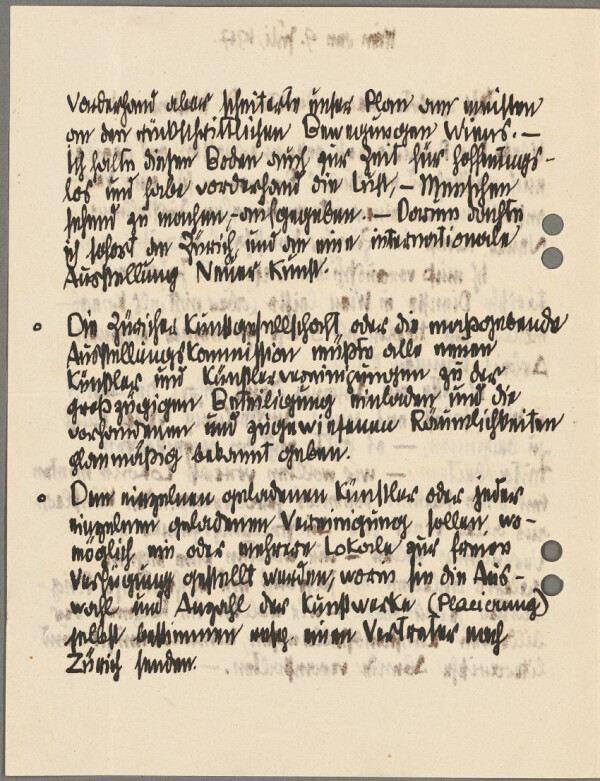 Vorderhand aber scheiterte unser Plan am meisten
an den rückschrittlichen Bewegungen Wiens. —
Ich halte diesen Boden auch zur Zeit für hoffnungs-
los und habe vorderhand die Lust, – Menschen
sehend zu machen – aufgegeben. — Darum dachte
ich sofort an Zürich, und an eine internationale
Ausstellung Neuer Kunst.
o Die Züricher Kunstgesellschaft, oder die maßgebende
Ausstellungskommission müßte alle neuen
Künstler und Künstlervereinigungen zu der
großzügigen Beteiligung einladen und die
vorhandenen und zugewiesenen Räumlichkeiten
planmäßig bekannt geben.
o Dem einzelnen geladenen Künstler oder jeder
einzelnen geladenen Vereinigung sollen, wo-
möglich ein oder mehrere Lokale zur freien
Verfügung gestellt werden, worin sie die Aus-
wahl und Anzahl der Kunstwerke (Placierung)
selbst bestimmen resp. einen Vertreter nach
Zürich senden.